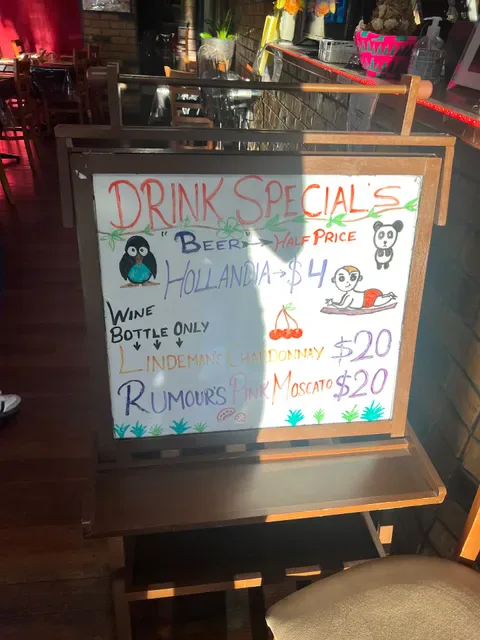 DRINK SPECIAL'S
"BEER" → HALF PRICE
HOLLANDIA → $4
WINE
BOTTLE ONLY
LINDEMANS CHARDONNAY $20
RUMOUR'S PINK MOSCATO $20